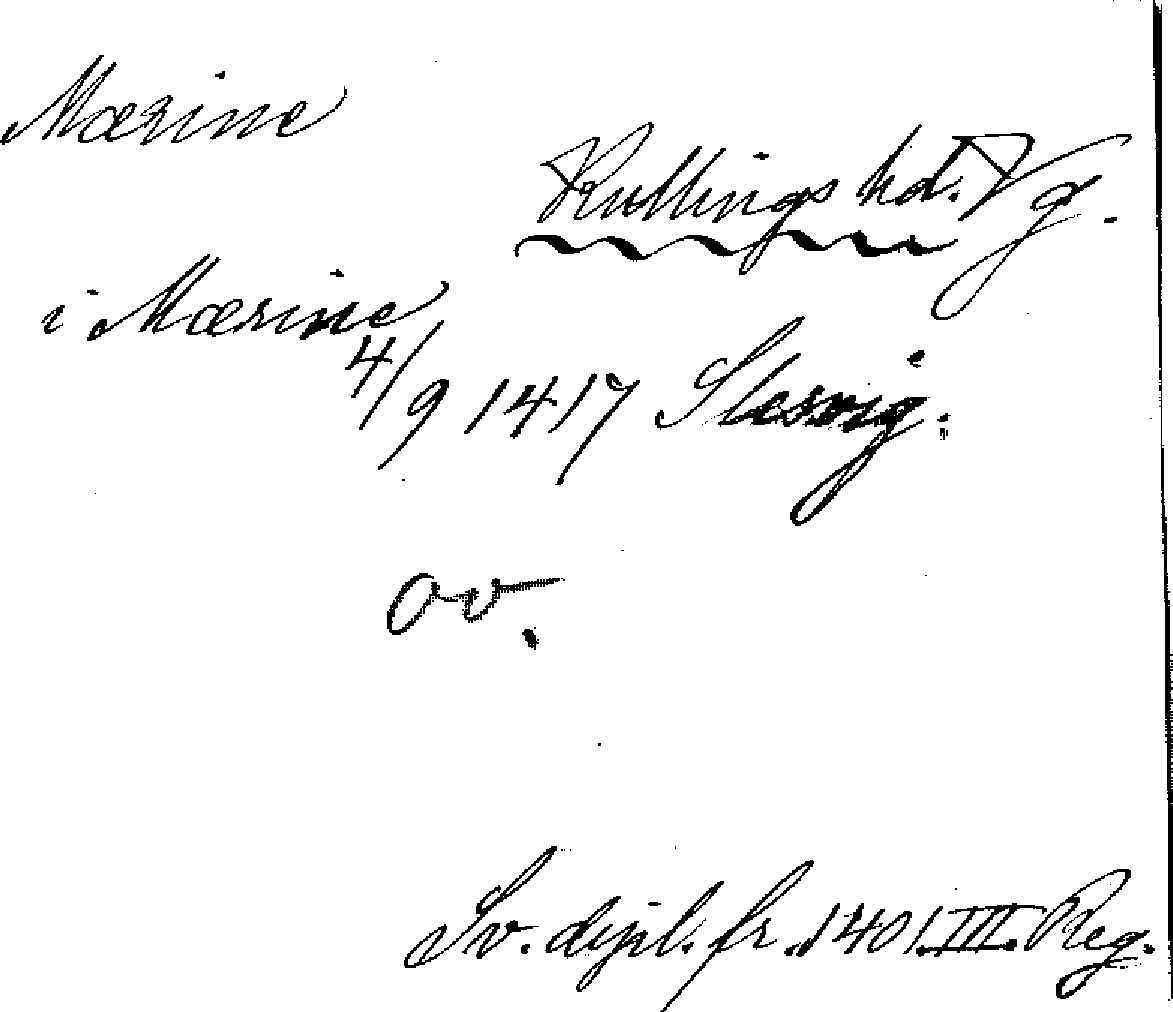 Mærine
Kullings hd. Vg.
i Mærine
4/9 1417 Slesvig.
ov.
Sv. dipl. fr. 1401 III. Reg.